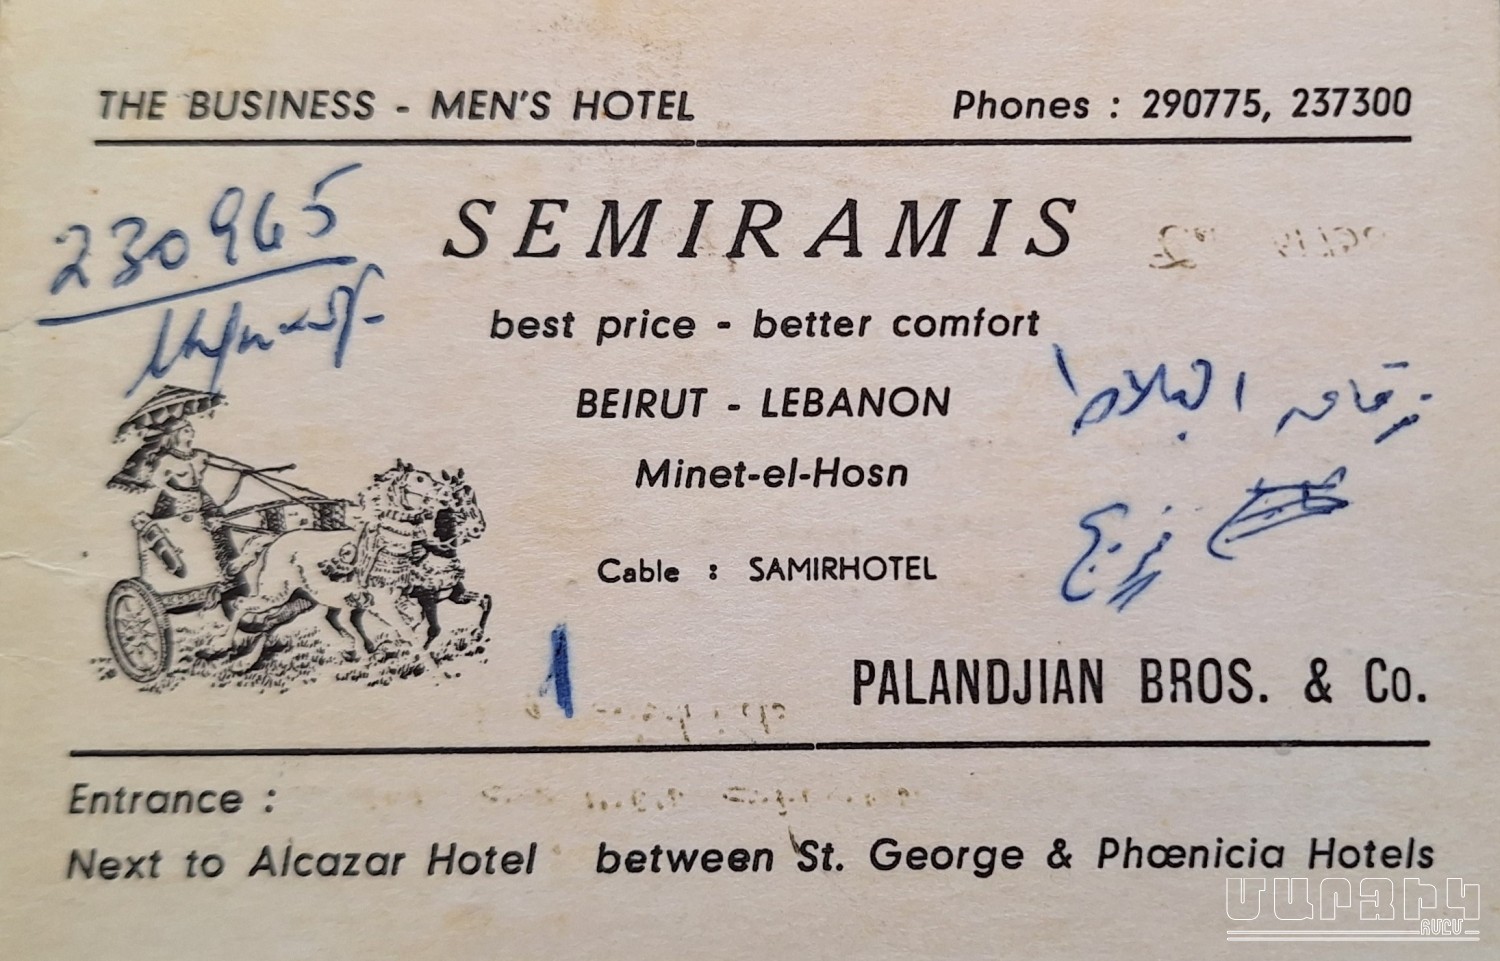 THE BUSINESS - MEN'S HOTEL
Phones : 290775, 237300
230965
SEMIRAMIS
best price - better comfort
BEIRUT - LEBANON
Minet-el-Hosn
زقاق البلاط
Cable : SAMIRHOTEL
1
PALANDJIAN BROS. & Co.
Entrance :
Next to Alcazar Hotel between St. George & Phœnicia Hotels